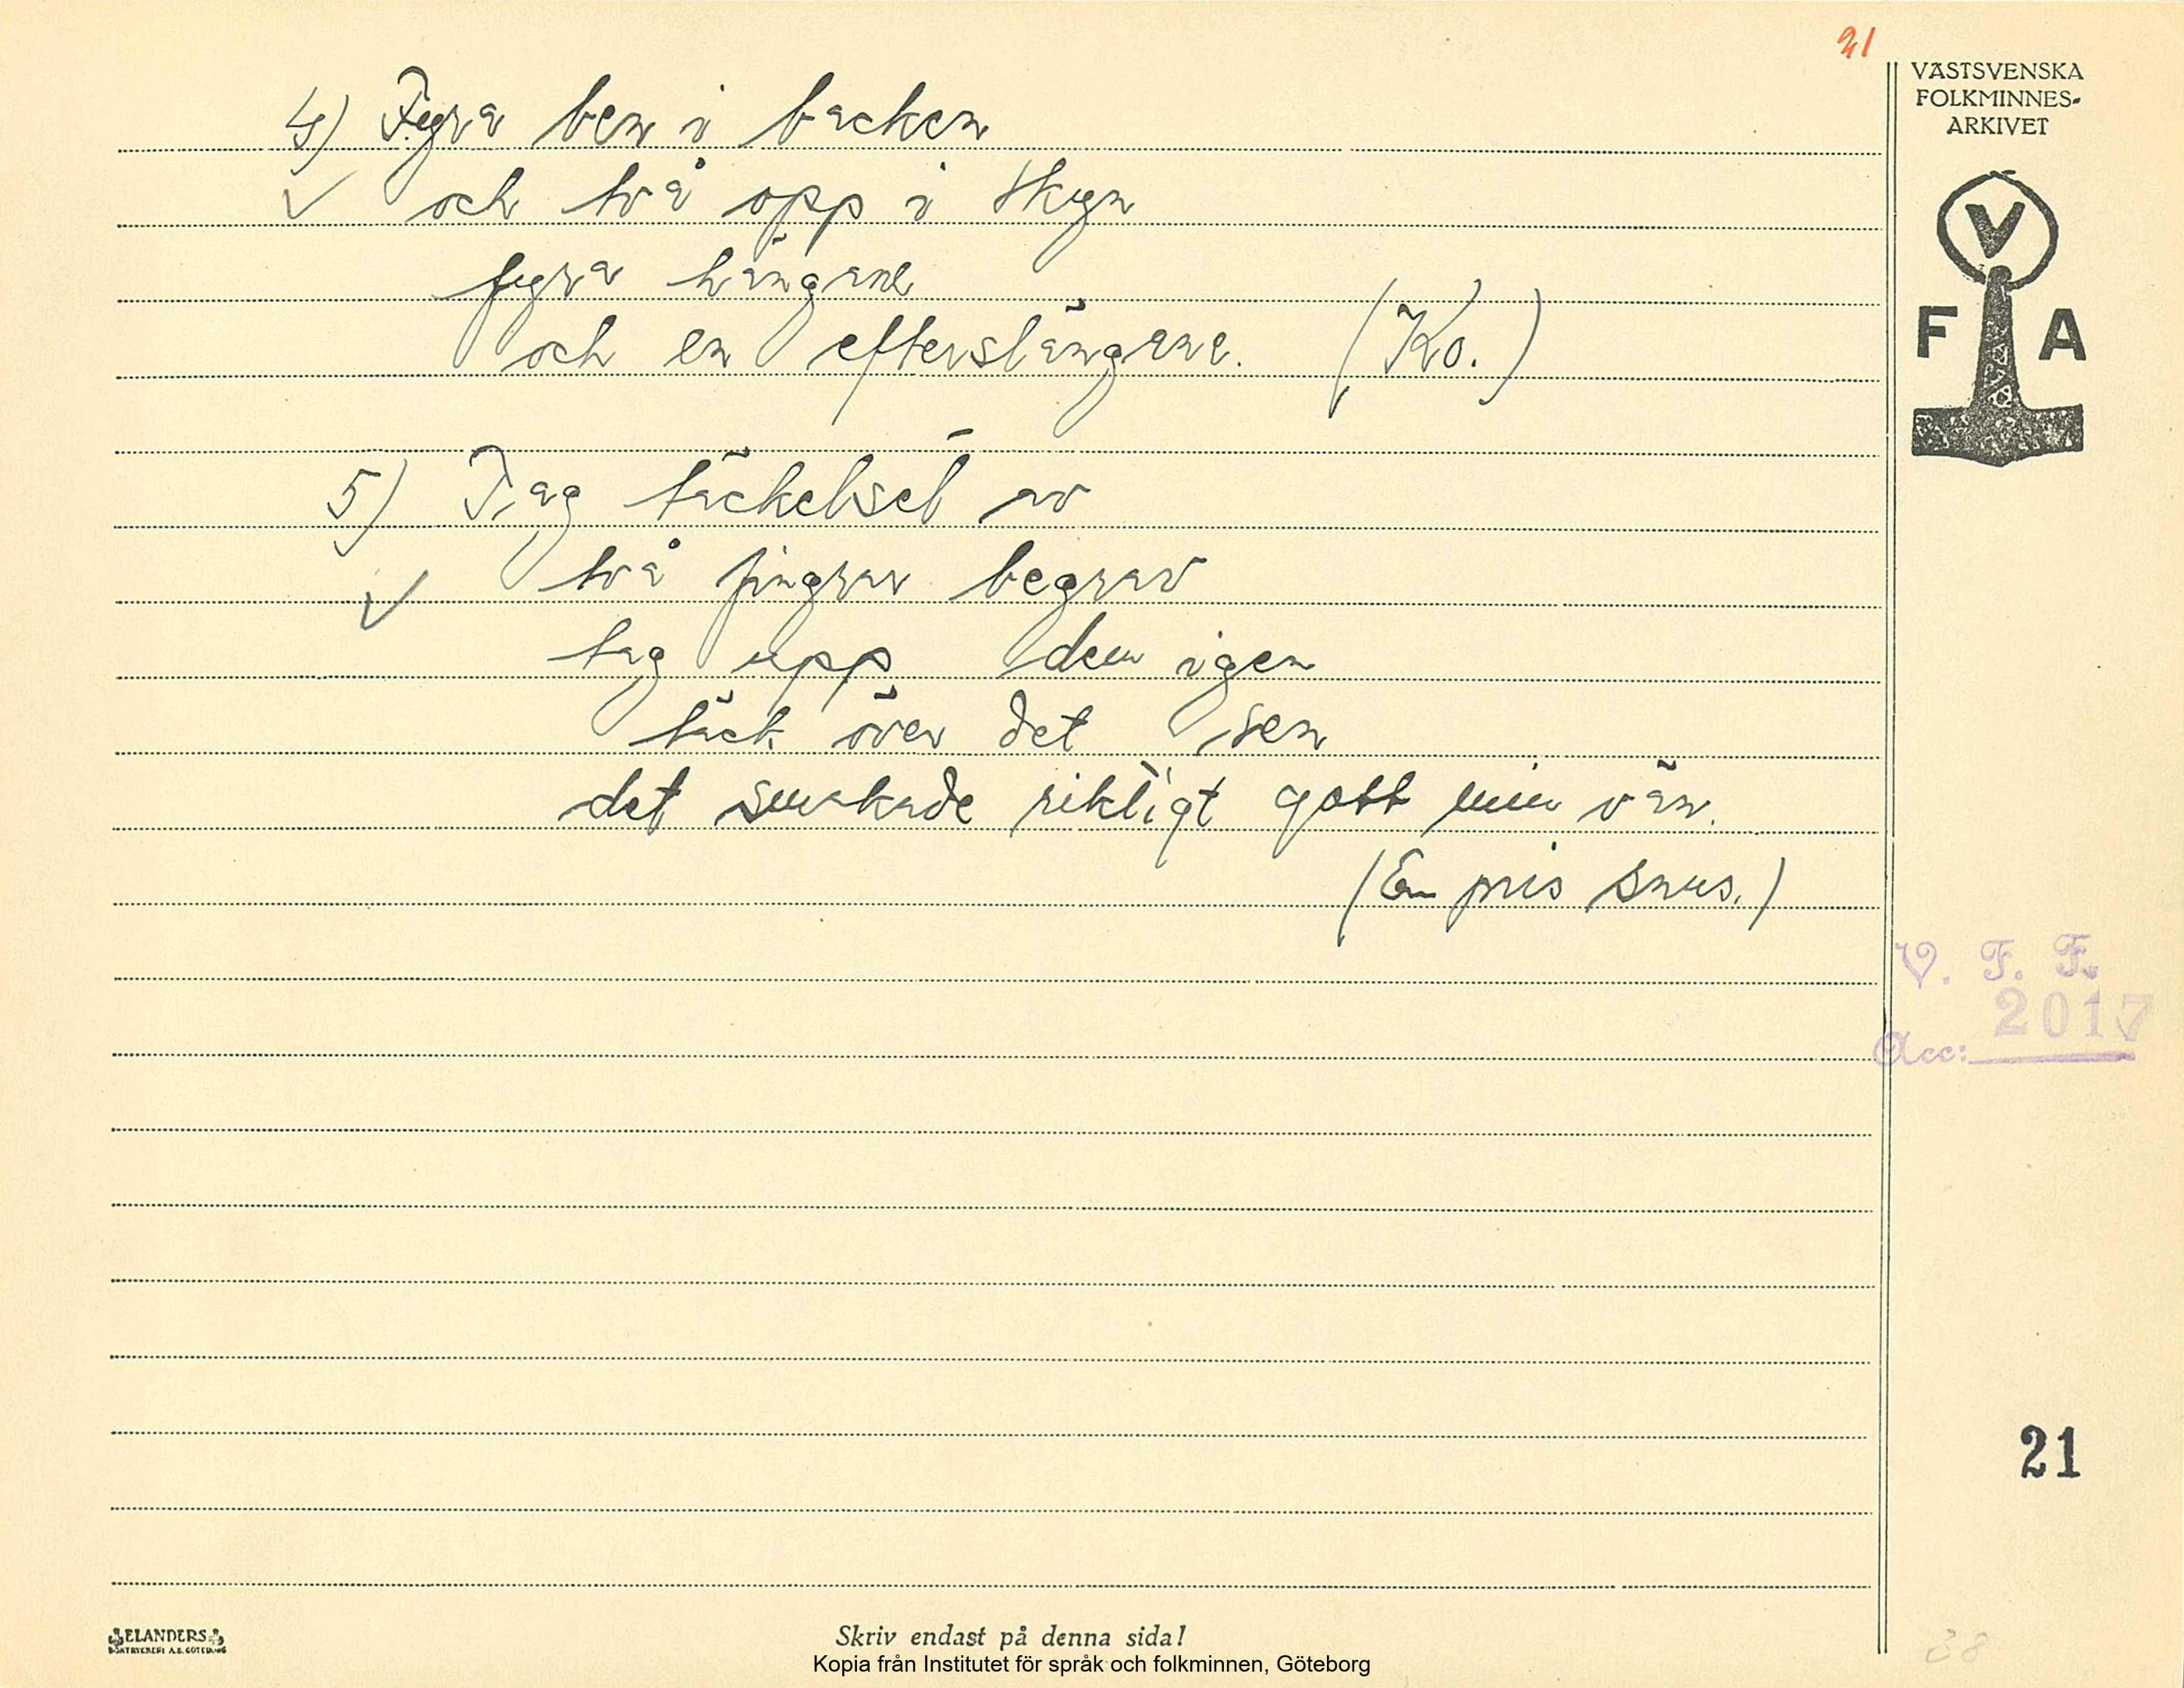 21
VÄSTSVENSKA
FOLKMINNES-
ARKIVET
V
F A
4) Fyra ben i backen
och två opp i skyn
fyra hängane
och en efterslängare. (Ko.)
5) Tag täckelset av
två fingrar begrav
tag upp dem igen
täck över det sen
det smakade riktigt gott min vän.
(En pris snus.)
V. F. F.
2017
Acc:
21
38
ELANDERS
BOKTRYCKERI A.B. GÖTEBORG
Skriv endast på denna sida!
Kopia från Institutet för språk och folkminnen, Göteborg